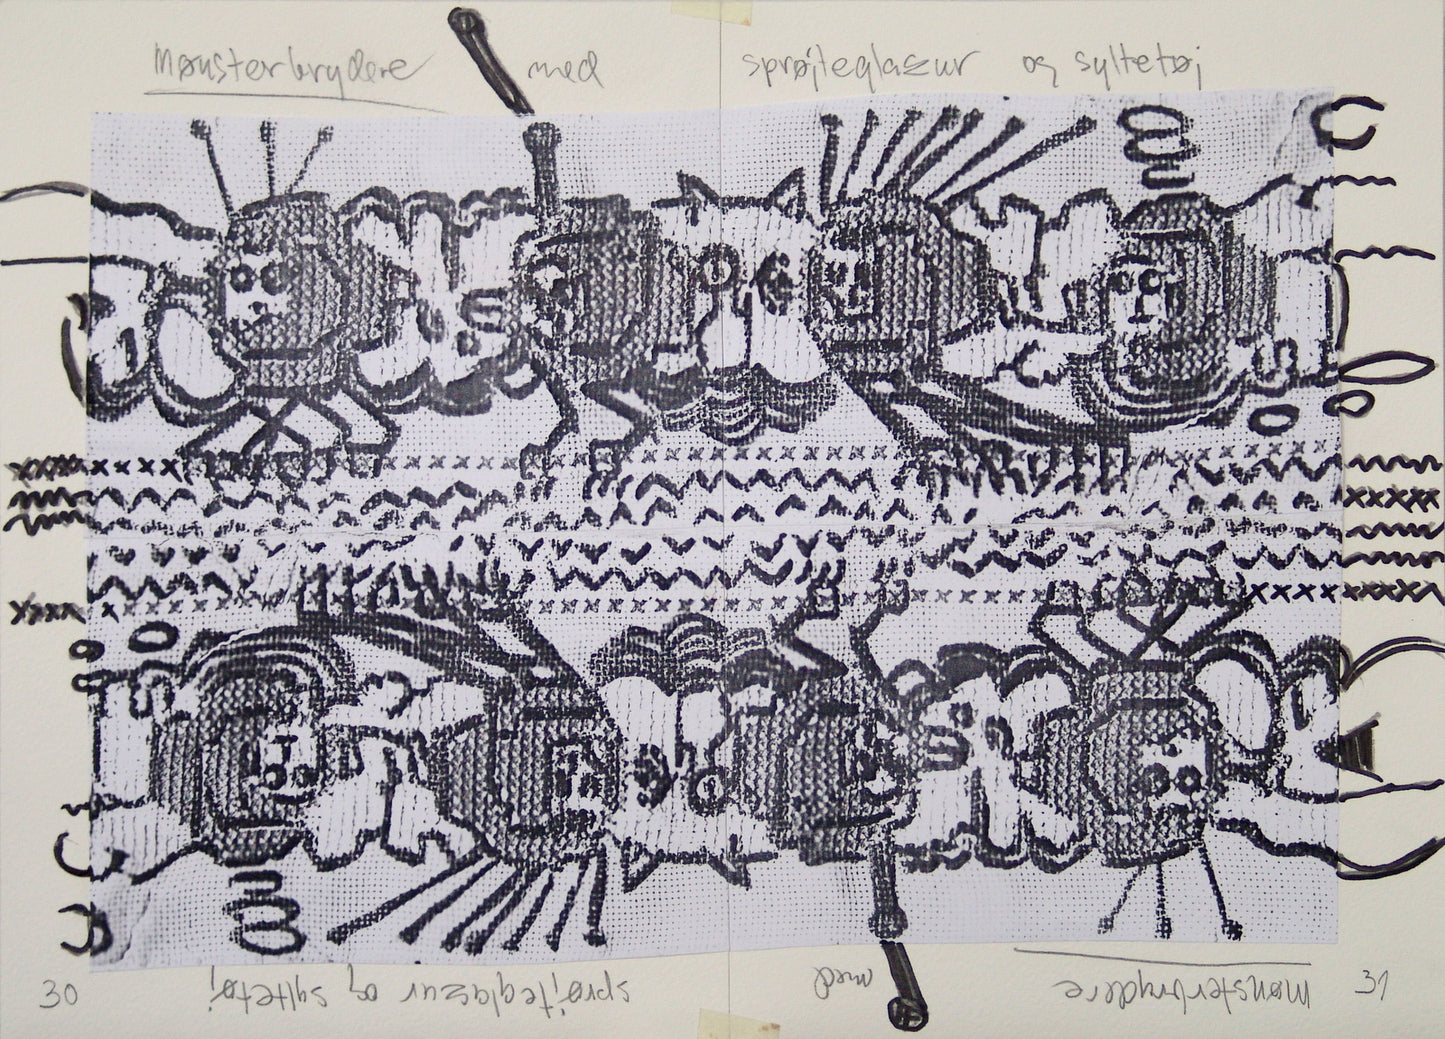 Mønsterbrydere med sprøjteglaszur og syltetøj
30
sprøjteglaszur og syltetøj
med
mønsterbrydere
31